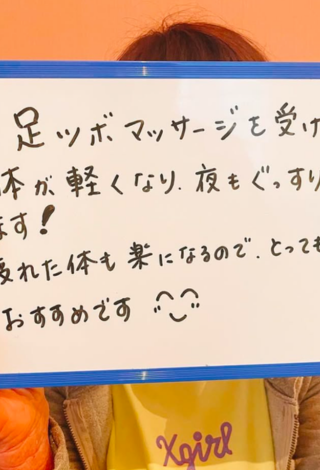 足ツボマッサージを受け
体が軽くなり、夜もぐっすり
ます!
疲れた体も楽になるので、とっても
おすすめです
Xgirl